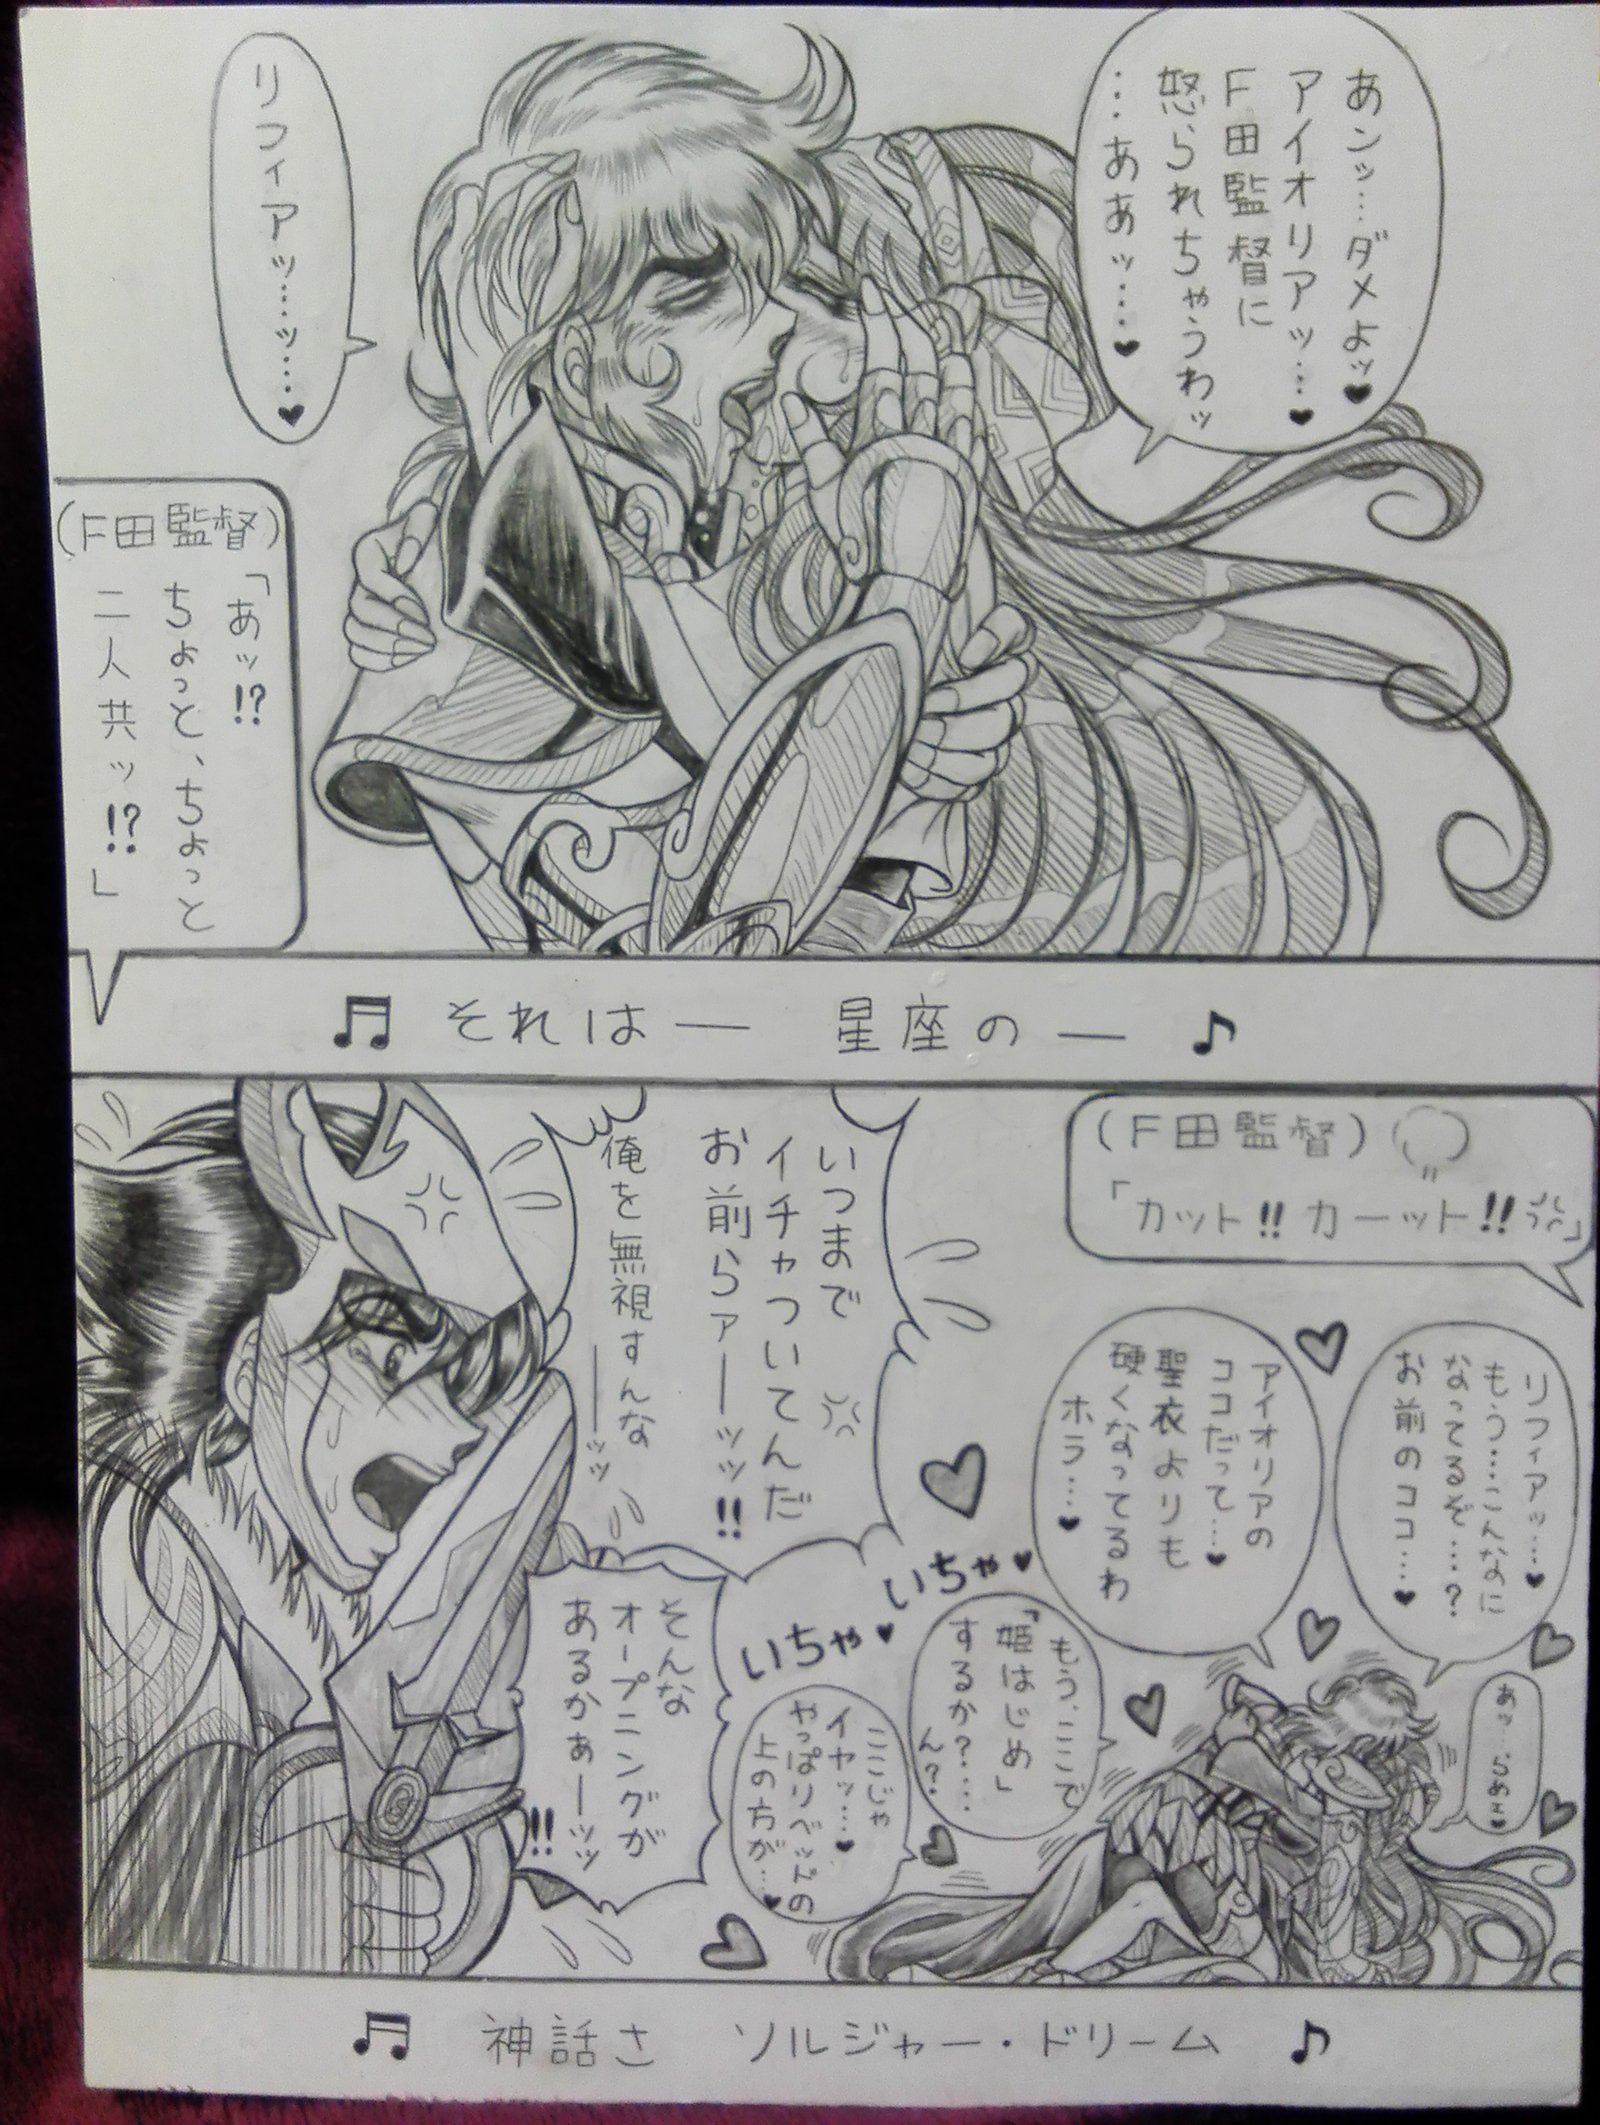 あンッ…ダメよッ♥
アイオリアッ…♥
F田監督に
怒られちゃうわッ
…ああッ…♥
リフィアッ…ッ…♥
(F田監督)
「あッ!?
ちょっと、ちょっと
二人共ッ!?」
♬ それは― 星座の― ♪
(F田監督)
「カット!! カーット!!」
リフィアッ…♥
もう…こんなに
なってるぞ…?
お前のココ…♥
アイオリアの
ココだって…♥
聖衣よりも
硬くなってるわ
ホラ…♥
いつまで
イチャついてんだ
お前らァーッッ!!
俺を無視すんな
――ッ
あッ…らめェ♥
いちゃ♥
いちゃ♥
もう、ここで
「姫はじめ」
するか?…
ん?
ここじゃ
イヤッ…♥
やっぱりベッドの
上の方が…♥
そんな
オープニングが
あるかぁーッッ
!!
♬ 神話さ ソルジャー・ドリーム ♪